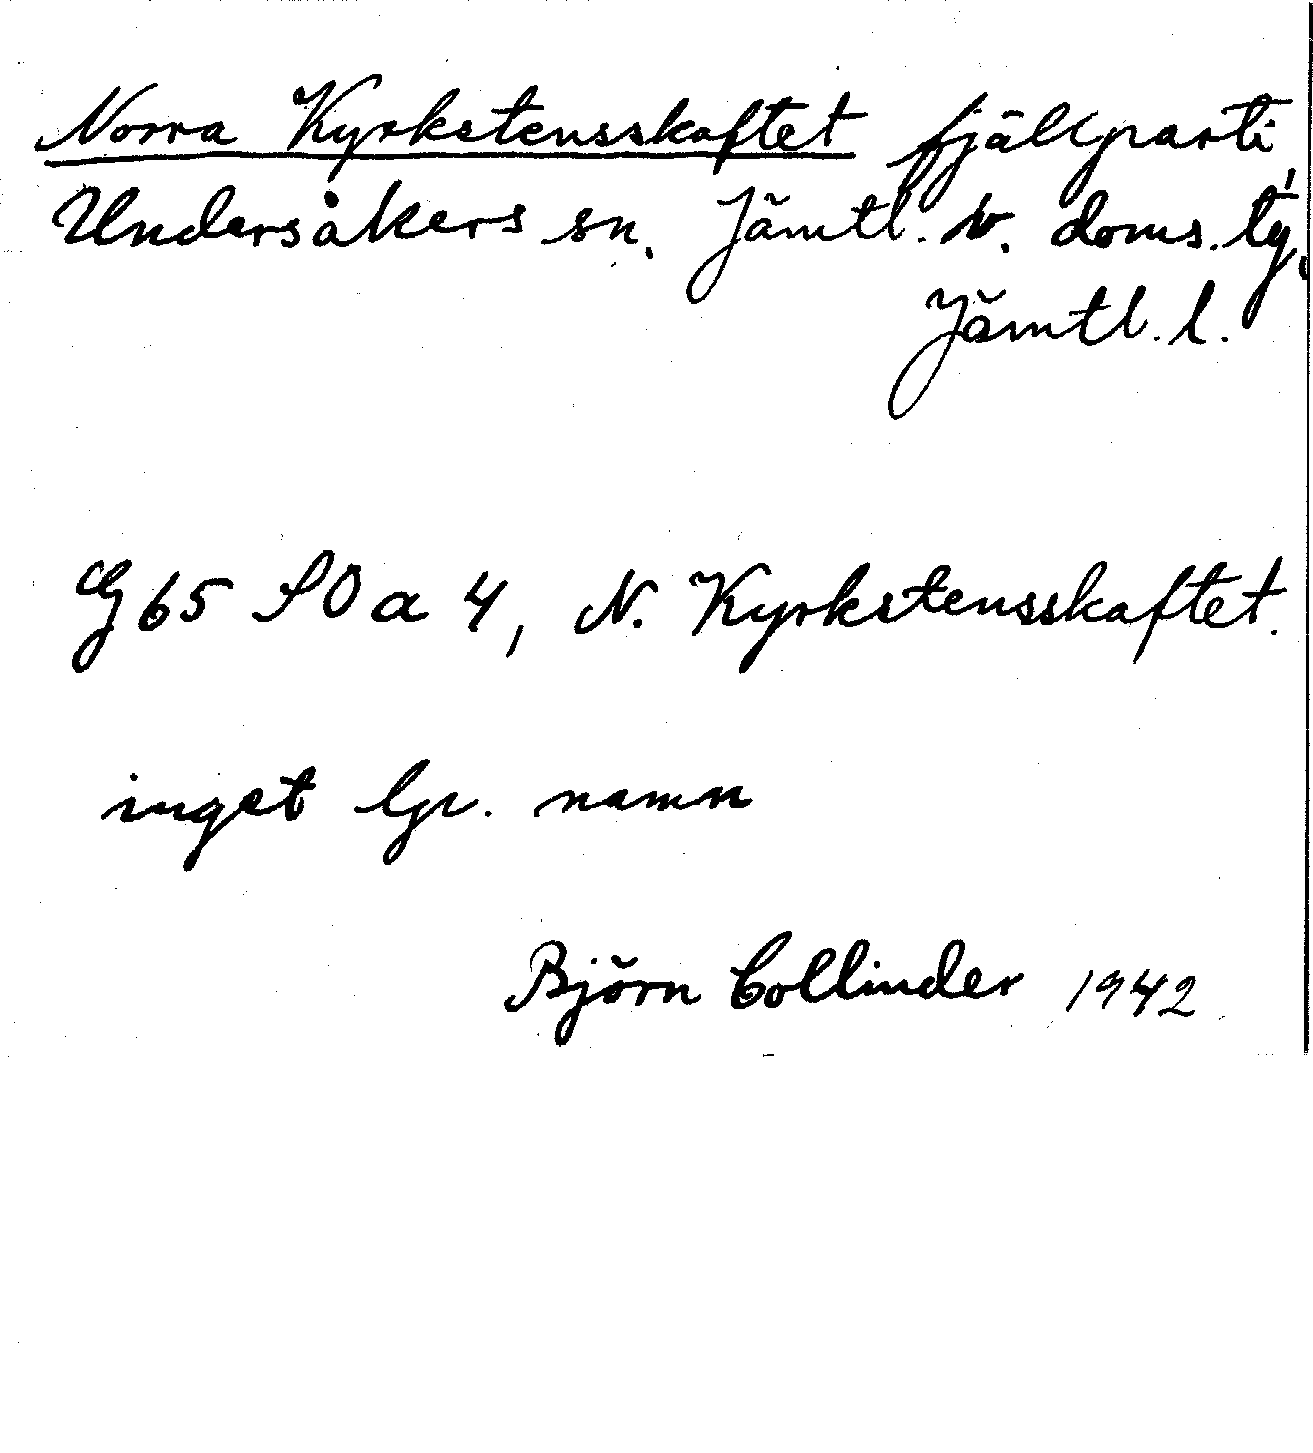 Norra Kyrkstensskaftet fjällparti,
Undersåkers sn. Jämtl. v. doms. tg.
Jämtl. l.
G 65 SO a 4, N. Kyrkstensskaftet.
inget lp. namn
Björn Collinder 1942